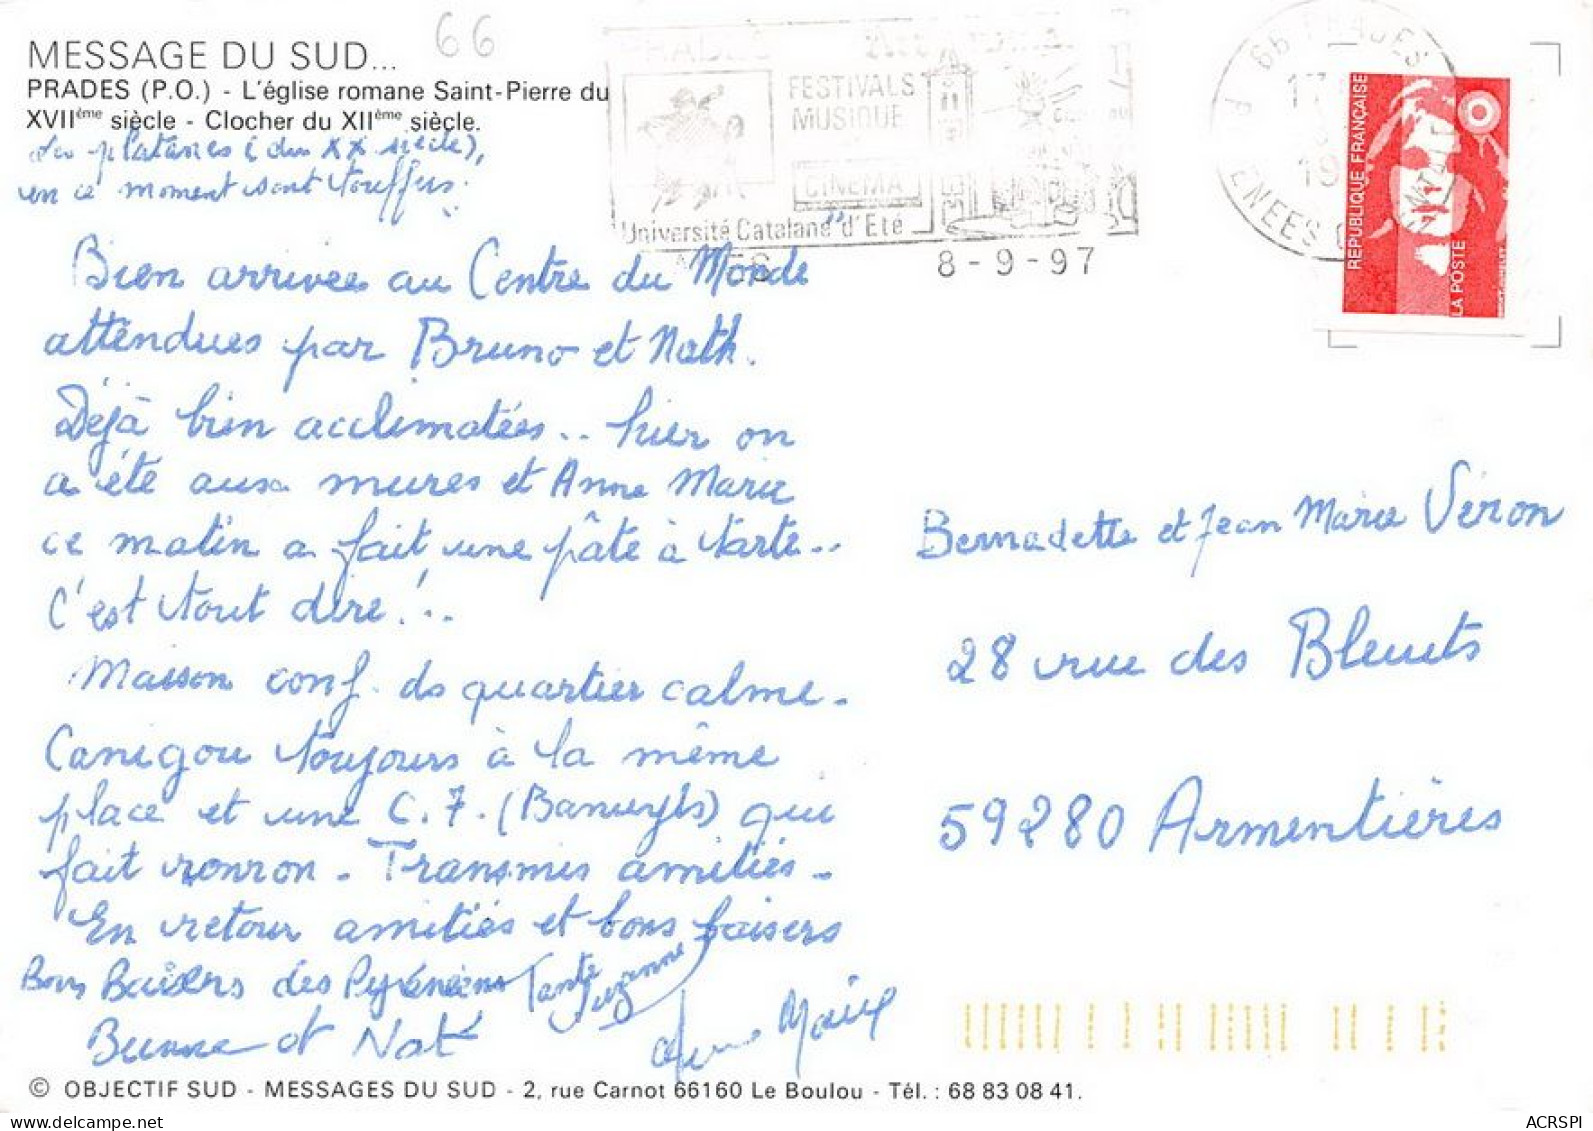 66
MESSAGE DU SUD...
PRADES (P.O.) - L'église romane Saint-Pierre du
XVIIème siècle - Clocher du XIIème siècle.
Les platanes (du XXe siècle),
en ce moment sont touffus.
PRADES
FESTIVALS
MUSIQUE
CINEMA
Université Catalane "d'Eté
8-9-97
66 PRADES
REPUBLIQUE FRANÇAISE
LA POSTE
Bien arrivées au Centre du Monde
attendues par Bruno et Nath.
Déjà bien acclimatées.. hier on
a été aux mures et Anne Marie
ce matin a fait une pâte à tarte..
C'est tout dire!..
Maison conf. ds quartier calme.
Canigou toujours à la même
place et une C.7. (Banuyls) qui
fait ronron. Transmis amitiés.
En retour amitiés et bons baisers
Tante Suzanne
Bons Baisers des Pyrénéens
Bruno et Nat
Anne Marie
Bernadette et Jean Marie Véron
28 rue des Bleuets
59280 Armentières
© OBJECTIF SUD - MESSAGES DU SUD - 2, rue Carnot 66160 Le Boulou - Tél. : 68 83 08 41.
ACRSPI